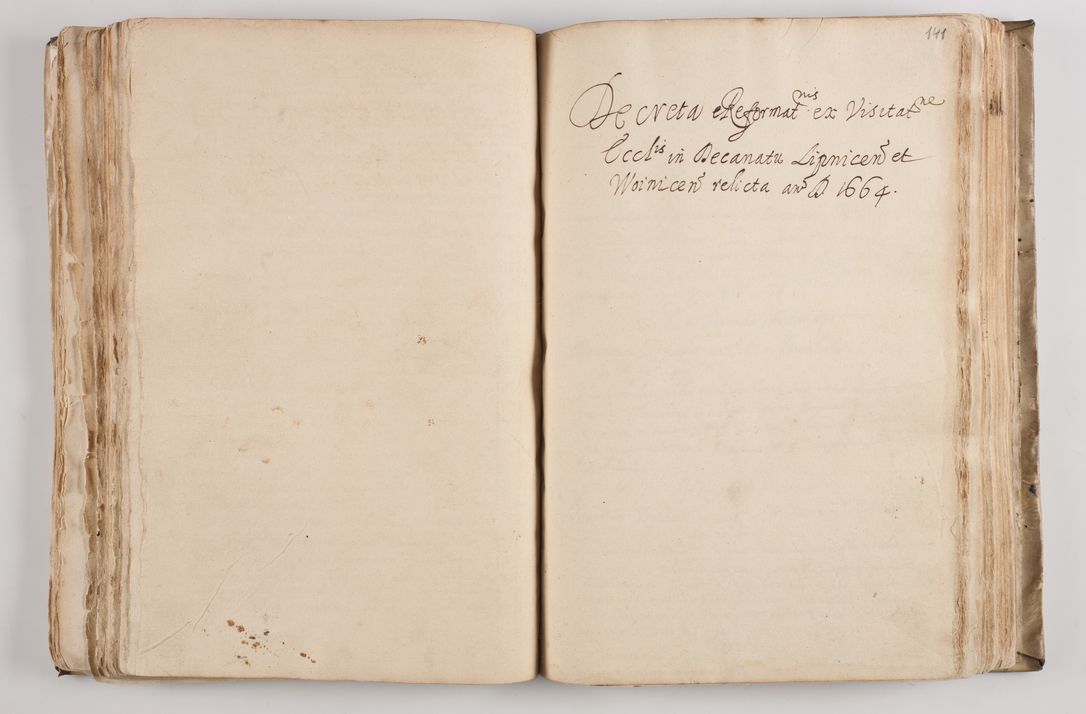 141
Decreta Reformatnis ex Visitatne
Ecclis in Decanatu Lipnicen et
Woinicen relicta ano D. 1664.